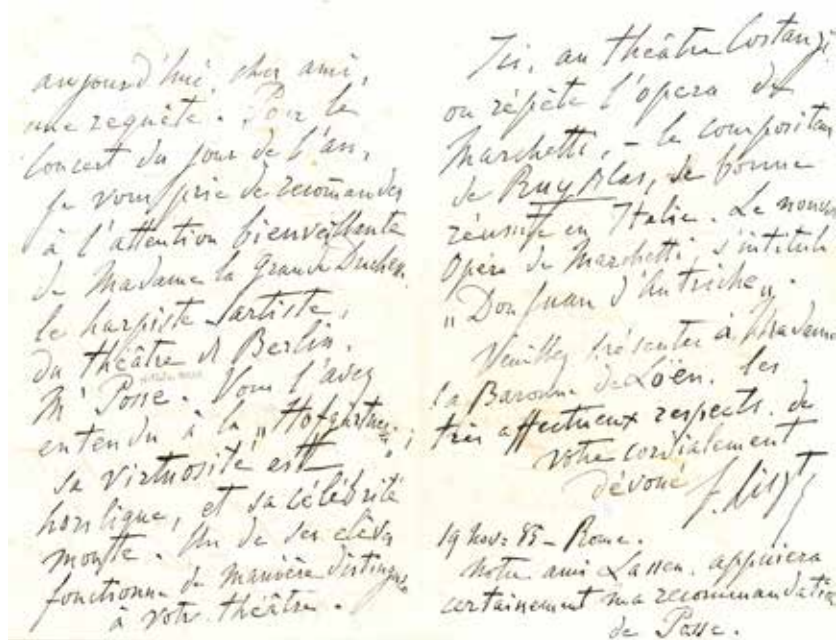 aujourd'hui, cher ami,
une requête. Pour le
Concert du jour de l'an,
je vous prie de recomander
à l'attention bienveillante
de Madame la Grande Duchesse
le harpiste-artiste,
du théâtre de Berlin.
Mr Posse. Vous l'avez
entendu à la „Hofgärtnerei„;
sa virtuosité est
hors ligne, et sa célébrité
monte. Un de ses élèves
fonctionne de manière distinguée
à votre théâtre.
Ici, au théâtre Costanzi
on répète l'opera de
Marchetti, – le compositeur
de Ruy Blas, de bonne
réussite en Italie. Le nouvel
Opéra de Marchetti s'intitule
„Don Juan d'Autriche„.
Veuillez présenter à Madame
la Baronne de Loën les
très affectueux respects de
votre cordialement
dévoué F. Liszt
19 Nov: 85 – Rome.
Notre ami Lassen appuiera
certainement ma recommandation
de Posse.